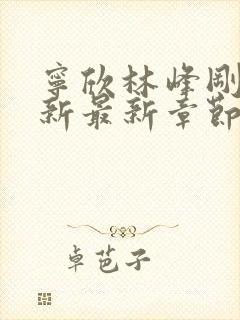 寧欣林峰剛
新最新章節
卓芭子